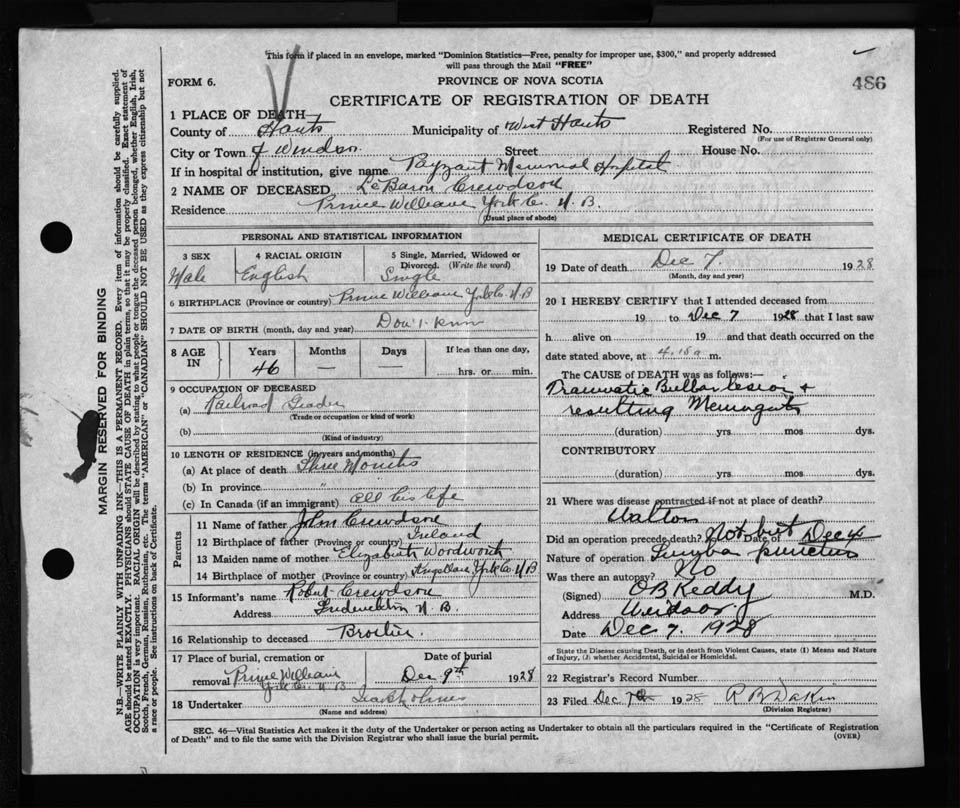 This form if placed in an envelope, marked "Dominion Statistics—Free, penalty for improper use, $300," and properly addressed
will pass through the Mail "FREE"
FORM 6.
PROVINCE OF NOVA SCOTIA
486
CERTIFICATE OF REGISTRATION OF DEATH
1 PLACE OF DEATH—
County of Hants Municipality of West Hants Registered No.
(For use of Registrar General only)
City or Town of Windsor Street House No.
If in hospital or institution, give name Payzant Memorial Hospital
2 NAME OF DECEASED LeBaron Crewdson
Residence Prince William York Co. N.B.
(Usual place of abode)
PERSONAL AND STATISTICAL INFORMATION
3 SEX 4 RACIAL ORIGIN 5 Single, Married, Widowed or
Divorced. (Write the word)
Male English Single
6 BIRTHPLACE (Province or country) Prince William York Co. N.B
7 DATE OF BIRTH (month, day and year) Don't know
8 AGE IN Years Months Days If less than one day,
46 — — hrs. or min.
9 OCCUPATION OF DECEASED
(a) Railroad
(Trade or occupation or kind of work)
(b)
(Kind of industry)
10 LENGTH OF RESIDENCE (in years and months)
(a) At place of death Three Months
(b) In province " "
(c) In Canada (if an immigrant) all his life
Parents
11 Name of father John Crewdson
12 Birthplace of father (Province or country) Ireland
13 Maiden name of mother Elizabeth Wordworth
14 Birthplace of mother (Province or country) York Co. N.B
15 Informant's name Robert Crewdson
Address Fredericton N.B.
16 Relationship to deceased Brother.
17 Place of burial, cremation or Date of burial
removal Prince William Dec 9th 1928
York Co. N.B
18 Undertaker
(Name and address)
MEDICAL CERTIFICATE OF DEATH
19 Date of death Dec 7. 1928
(Month, day and year)
20 I HEREBY CERTIFY that I attended deceased from
19 to Dec 7 1928 that I last saw
h alive on 19 and that death occurred on the
date stated above, at 4.15 a m.
The CAUSE of DEATH was as follows:—
Traumatic Bulbar lesion +
resulting
(duration) yrs mos dys.
CONTRIBUTORY
(duration) yrs mos dys.
21 Where was disease contracted if not at place of death?
Walton
Did an operation precede death? Not but Date of Dec 4
Nature of operation Lumbar puncture
Was there an autopsy? No
(Signed) O B Keddy M.D.
Address Windsor
Date Dec 7. 1928
State the Disease causing Death, or in death from Violent Causes, state (1) Means and Nature
of Injury, (2) whether Accidental, Suicidal or Homicidal.
22 Registrar's Record Number
23 Filed Dec 7th 1928 R B Dakin
(Division Registrar)
SEC. 46—Vital Statistics Act makes it the duty of the Undertaker or person acting as Undertaker to obtain all the particulars required in the "Certificate of Registration
of Death" and to file the same with the Division Registrar who shall issue the burial permit.
(OVER)
MARGIN RESERVED FOR BINDING
N.B.—WRITE PLAINLY WITH UNFADING INK—THIS IS A PERMANENT RECORD. Every item of information should be carefully supplied.
AGE should be stated EXACTLY. PHYSICIANS should STATE CAUSE OF DEATH in plain terms, so that it may be properly classified. Exact statement of
OCCUPATION is very important. RACIAL ORIGIN will be described by stating to what people or tongue the deceased person belonged, whether English, Irish,
Scotch, French, German, Russian, Ruthenian, etc. The terms "AMERICAN" or "CANADIAN" SHOULD NOT BE USED as they express citizenship but not
a race or people. See instructions on back of Certificate.